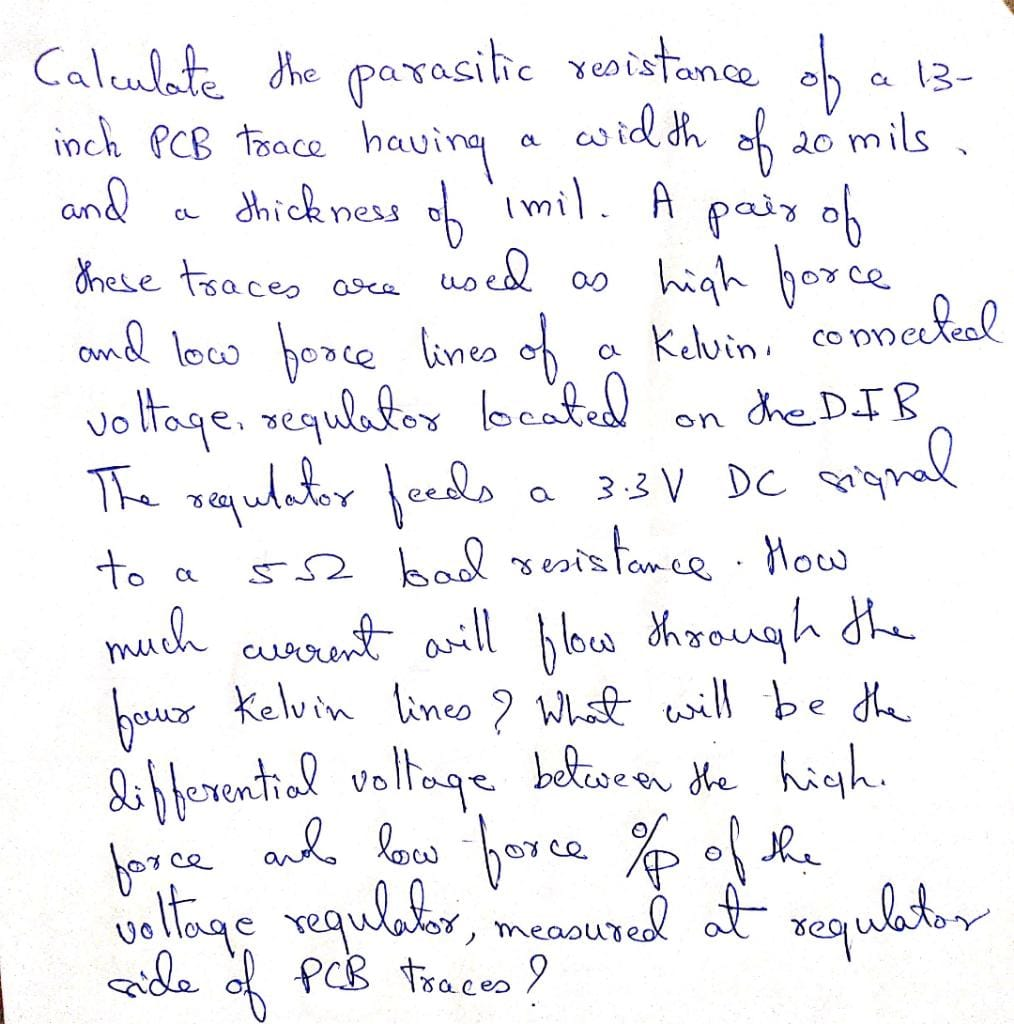 Calculate the parasitic resistance of a 13-
inch PCB trace having a width of 20 mils.
and a thickness of 1mil. A pair of
these traces are used as high force
and low force lines of a Kelvin. connected
voltage. regulator located on the DIB
The regulator feeds a 3.3 V DC signal
to a 5Ω load resistance. How
much current will flow through the
four Kelvin lines? What will be the
differential voltage between the high.
force and low force o/p of the
voltage regulator, measured at regulator
side of PCB traces?